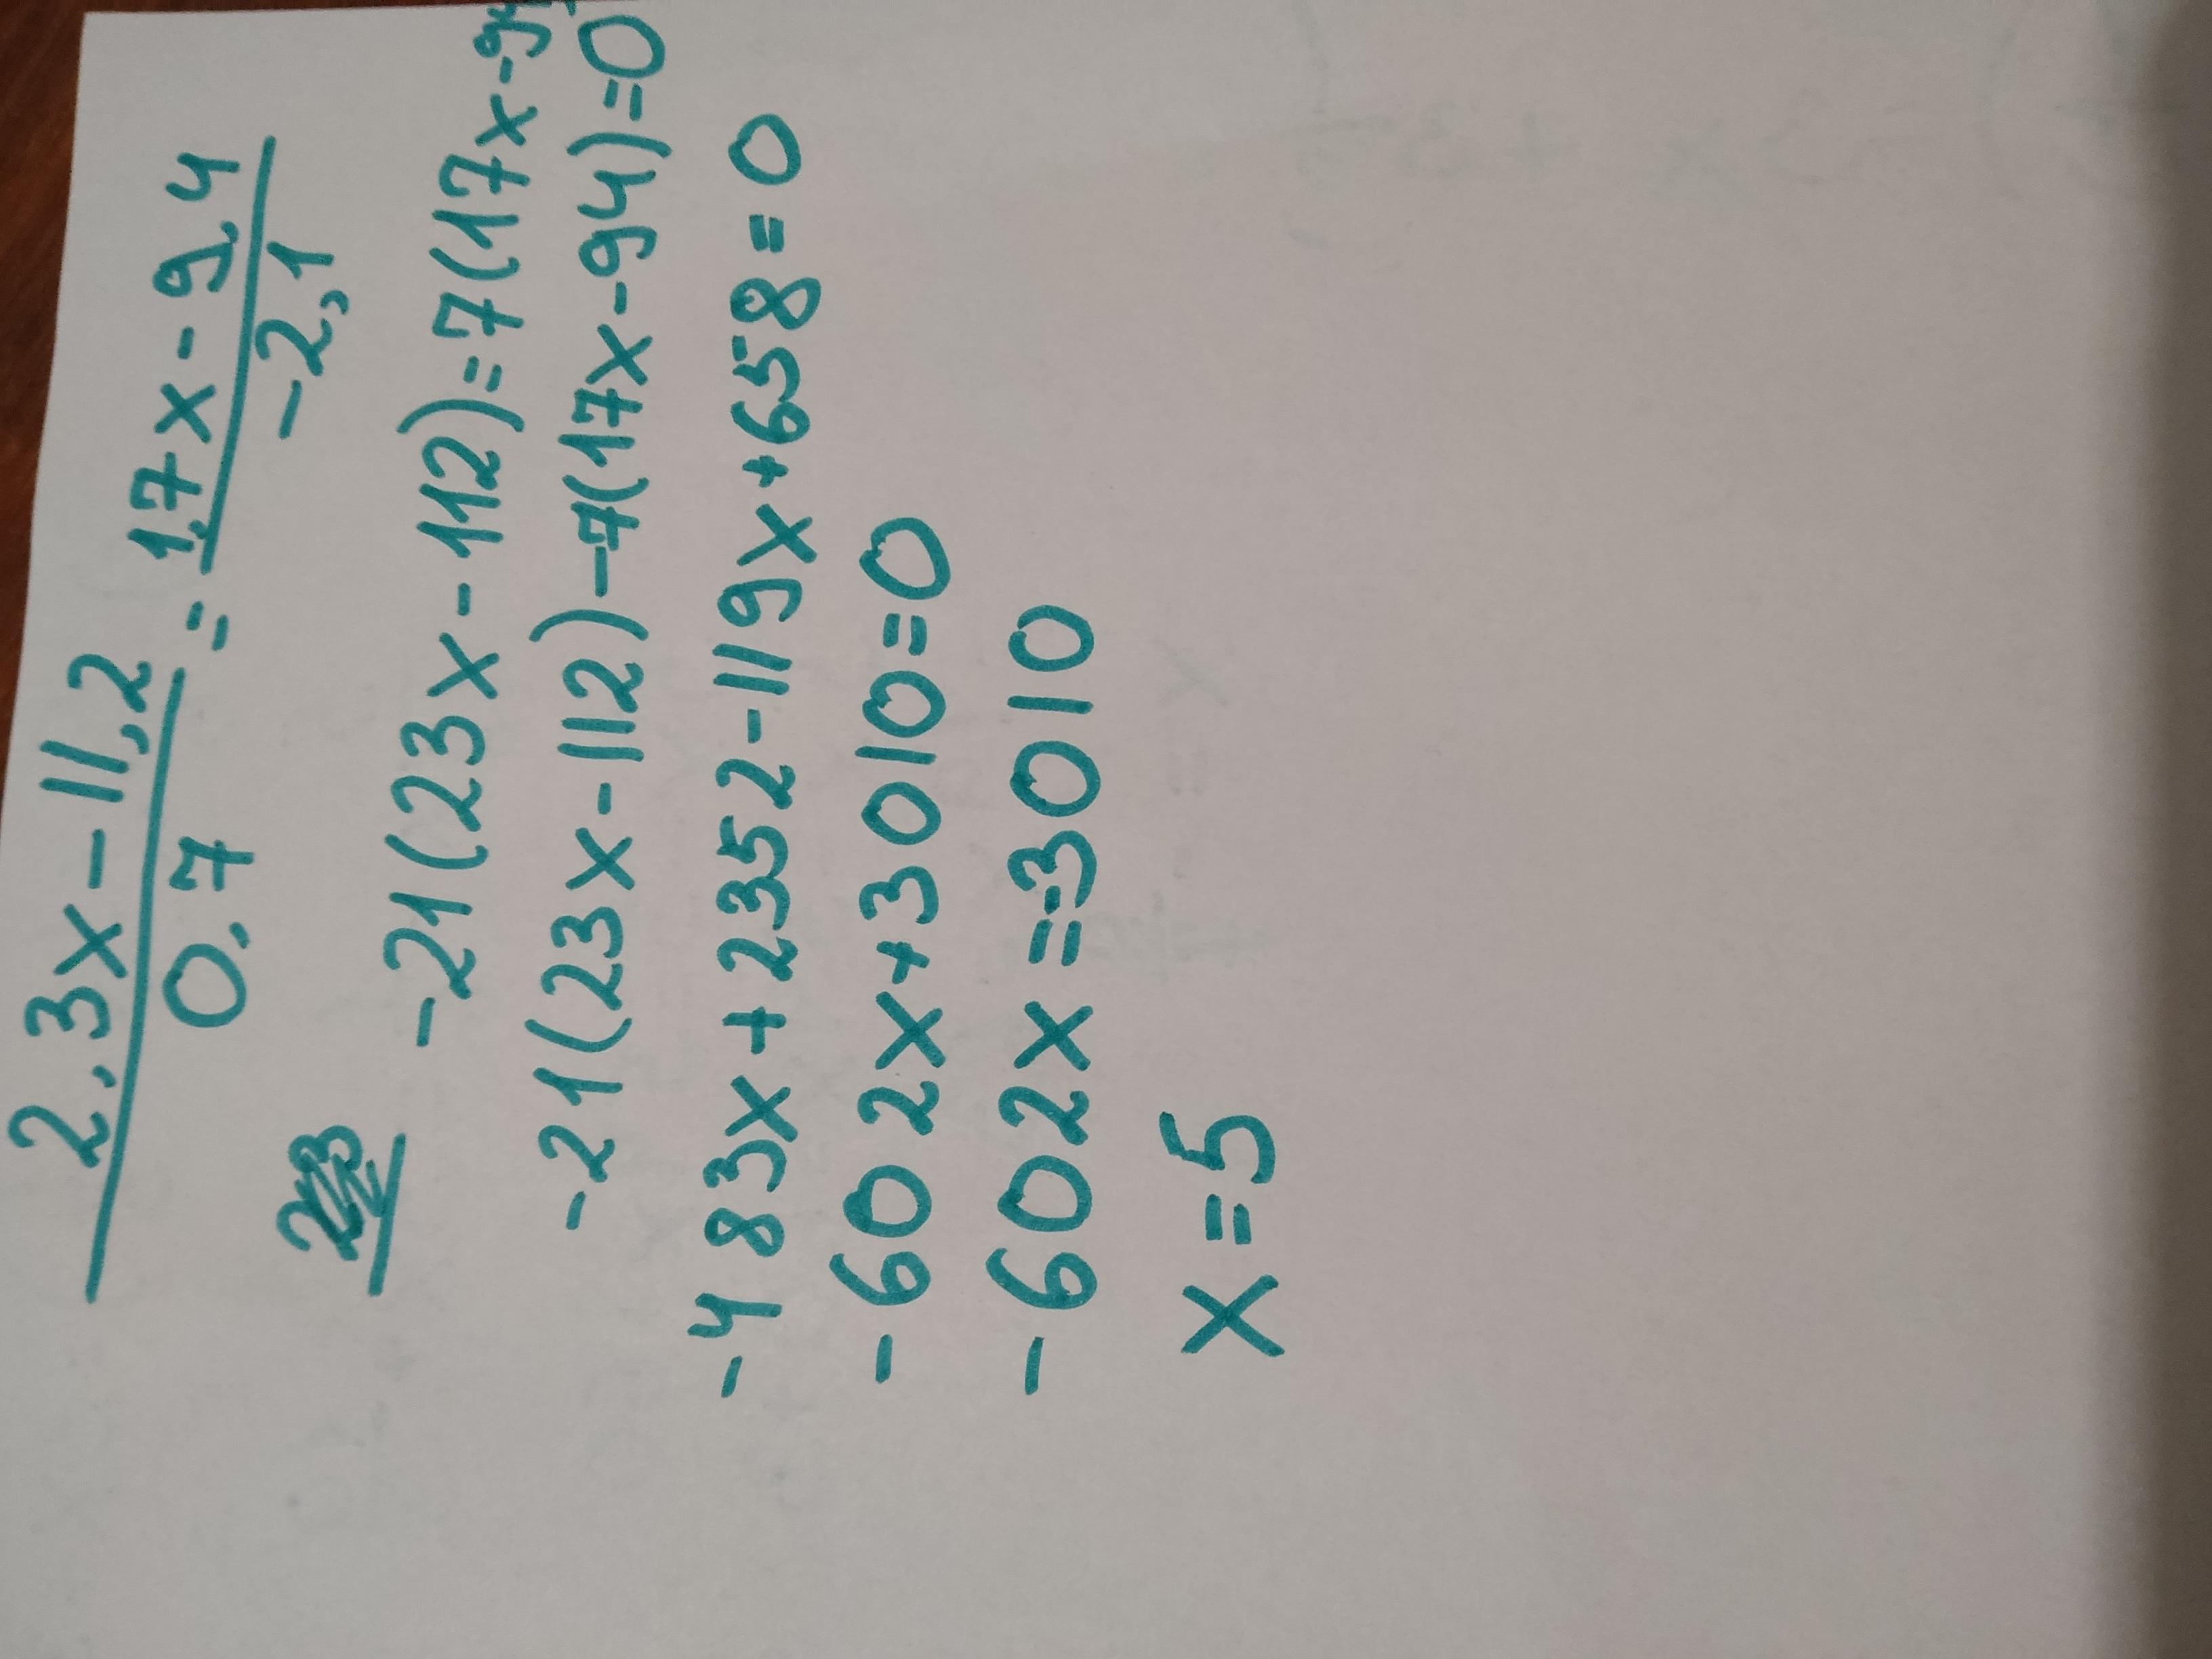 2,3x-11,2 = 1,7x-9,4
0,7 -2,1
-21(23x-112)=7(17x-94
-21(23x-112)-7(17x-94)=0
-483x+2352-119x+658=0
-602x+3010=0
-602x=-3010
x=5